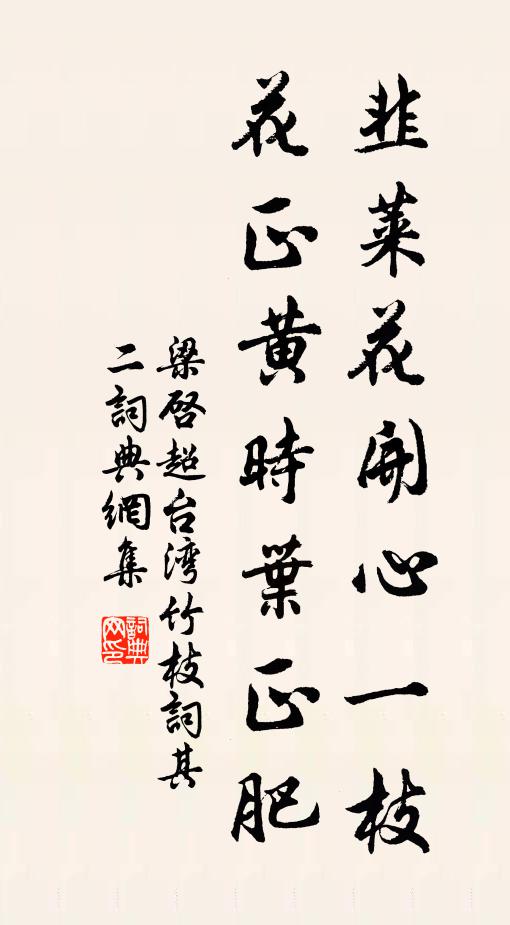 韭菜花開心一枝
花正黃時葉正肥
梁啓超台灣竹枝詞其
二詞典網集
詞典网印